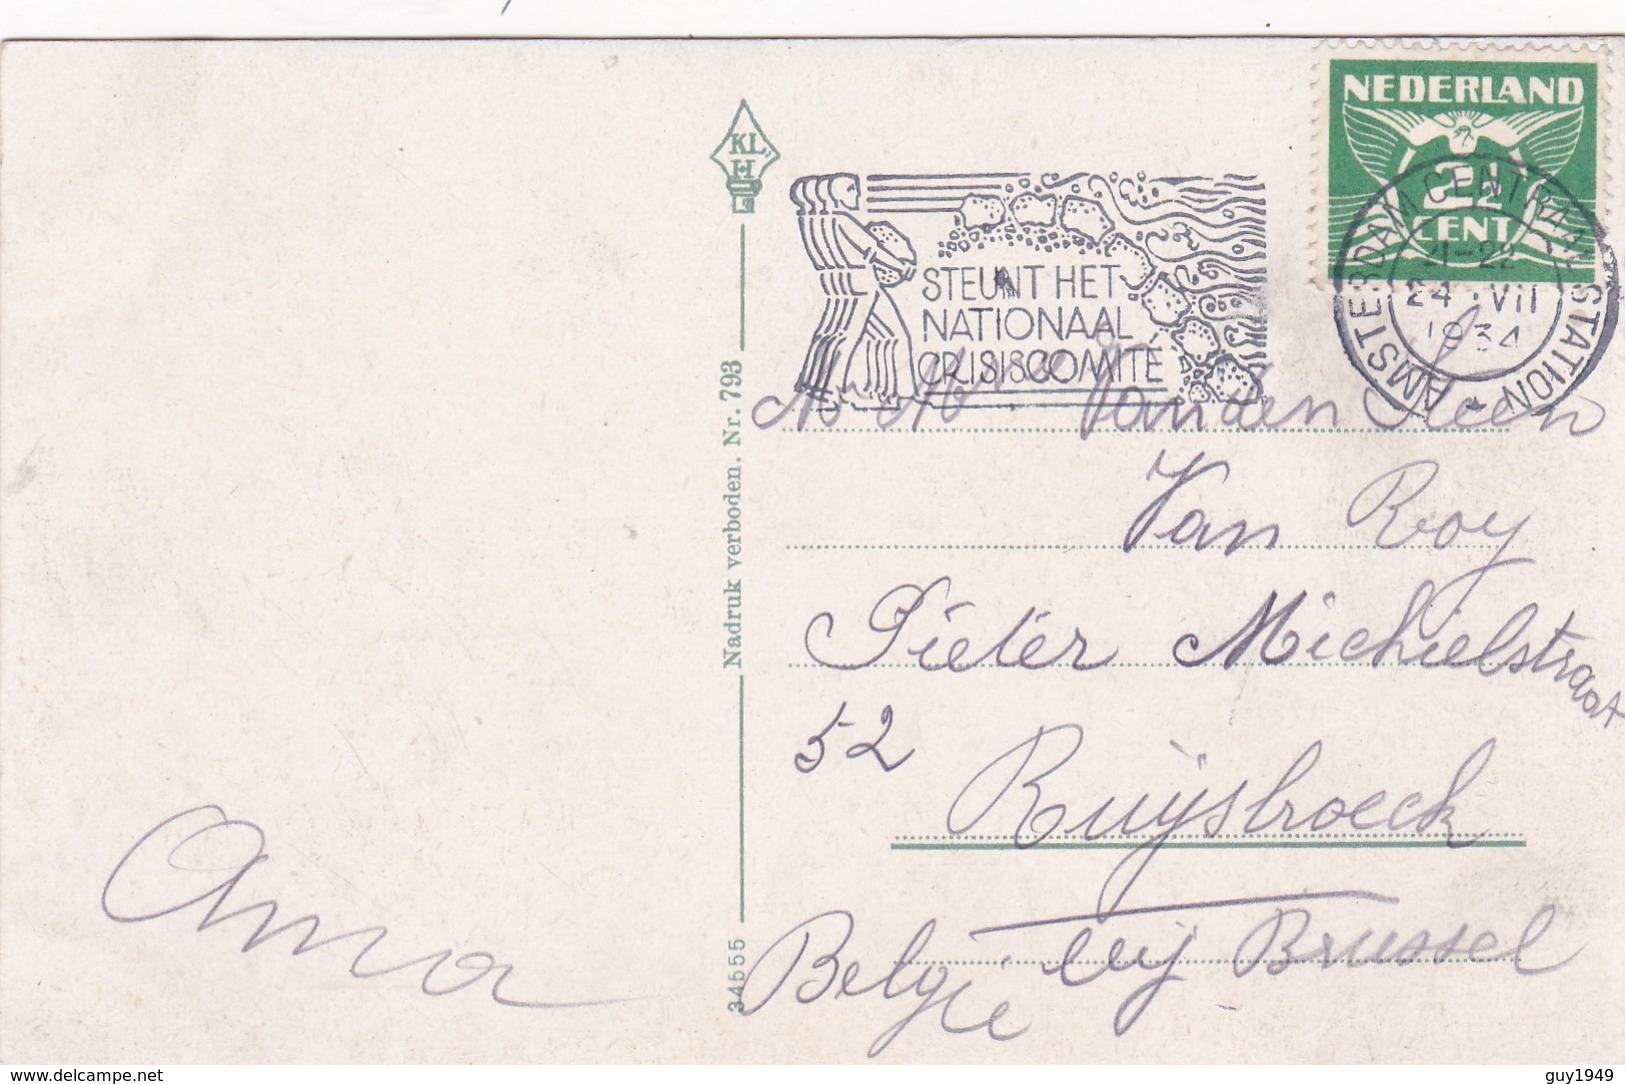 NEDERLAND
2½
CENT
AMSTERDAM CENTRAAL STATION
24 VII
1934
KL
H
STEUNT HET
NATIONAAL
CRISISCOMITÉ
Van den Steen
Van Roy
Pieter Michielstraat
52
Ruysbroeck
België bij Brussel
Anna
Nadruk verboden. Nr. 793
34555
www.delcampe.net
guy1949